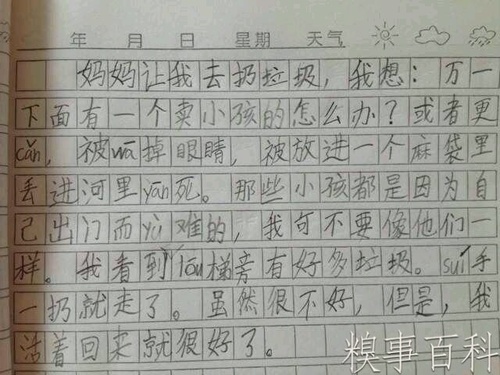 年 月 日 星期 天气
妈妈让我去扔垃圾，我想：万一
下面有一个卖小孩的怎么办？或者更
cǎn，被wā掉眼睛，被放进一个麻袋里
丢进河里yān死。那些小孩都是因为自
己出门而yù难的，我可不要像他们一
样。我看到lóu梯旁有好多垃圾。suí手
一扔就走了。虽然很不好，但是，我
活着回来就很好了。
糗事百科